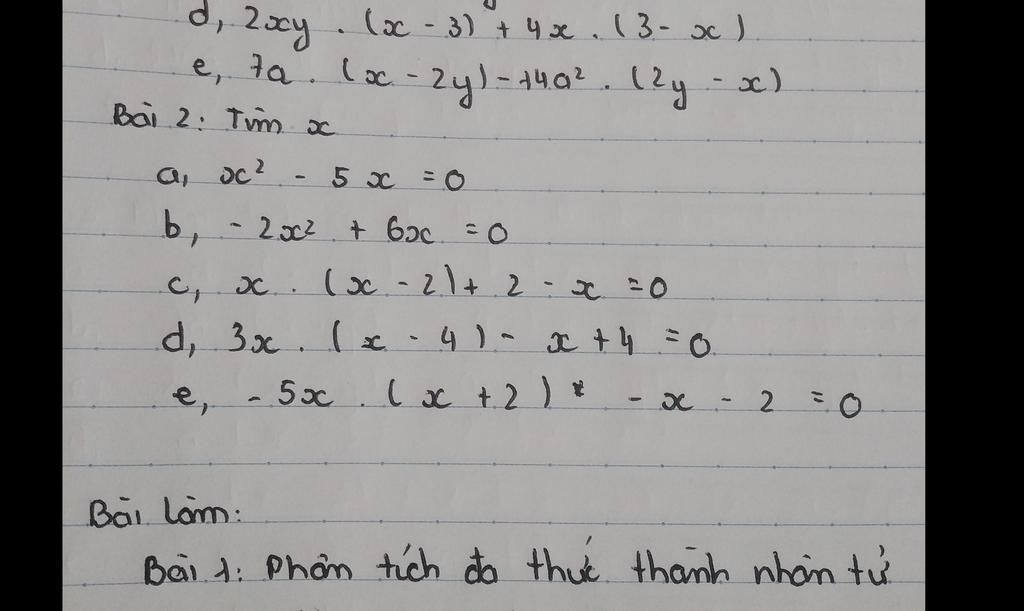 d, 2xy . (x - 3) + 4x . (3 - x)
e, 7a . (x - 2y) - 14a² . (2y - x)
Bài 2: Tìm x
a, x² - 5x = 0
b, - 2x² + 6x = 0
c, x . (x - 2) + 2 - x = 0
d, 3x . (x - 4) - x + 4 = 0
e, - 5x . (x + 2) - x - 2 = 0
Bài làm:
Bài 1: Phân tích đa thức thành nhân tử